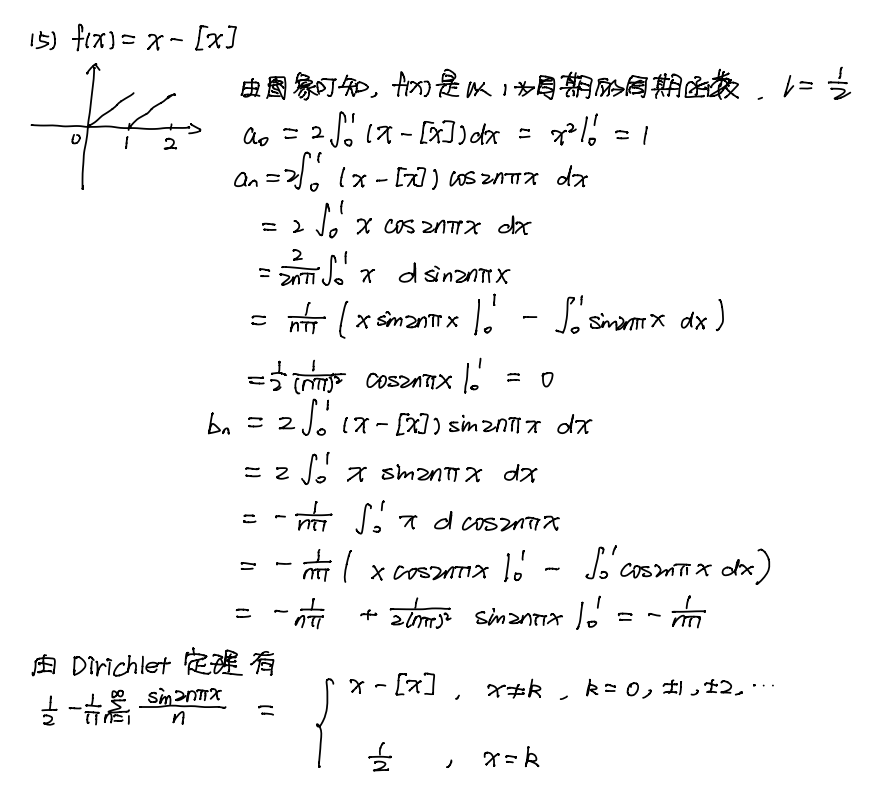 15) f(x) = x - [x]
由图象可知, f(x)是以1为周期的周期函数. l = 1/2
0 1 2
a₀ = 2∫₀¹ (x-[x])dx = x²|₀¹ = 1
aₙ = 2∫₀¹ (x-[x]) cos2nπx dx
= 2∫₀¹ x cos2nπx dx
= 2/2nπ ∫₀¹ x d sin2nπx
= 1/nπ (x sin2nπx |₀¹ - ∫₀¹ sin2nπx dx)
= 1/2 1/(nπ)² cos2nπx |₀¹ = 0
bₙ = 2∫₀¹ (x-[x]) sin2nπx dx
= 2∫₀¹ x sin2nπx dx
= -1/nπ ∫₀¹ x d cos2nπx
= -1/nπ (x cos2nπx |₀¹ - ∫₀¹ cos2nπx dx)
= -1/nπ + 1/2(nπ)² sin2nπx |₀¹ = -1/nπ
由 Dirichlet 定理有
1/2 - 1/π ∑ₙ₌₁^∞ sin2nπx/n = { x-[x], x≠k, k=0, ±1, ±2, ⋯
1/2, x=k